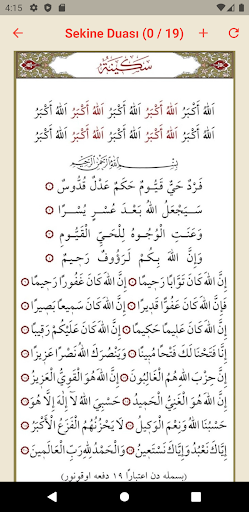 4:15
Sekine Duası (0 / 19)
سكينة
اَللّٰهُ اَكْبَرُ اَللّٰهُ اَكْبَرُ اَللّٰهُ اَكْبَرُ اَللّٰهُ اَكْبَرُ اَللّٰهُ اَكْبَرُ
اَللّٰهُ اَكْبَرُ اَللّٰهُ اَكْبَرُ اَللّٰهُ اَكْبَرُ اَللّٰهُ اَكْبَرُ اَللّٰهُ اَكْبَرُ
بِسْمِ اللّٰهِ الرَّحْمٰنِ الرَّحِيمِ
فَرْدٌ حَيٌّ قَيُّومٌ حَكَمٌ عَدْلٌ قُدُّوسٌ
سَيَجْعَلُ اللّٰهُ بَعْدَ عُسْرٍ يُسْرًا
وَعَنَتِ الْوُجُوهُ لِلْحَيِّ الْقَيُّومِ
وَإِنَّ اللّٰهَ بِكُمْ لَرَؤُوفٌ رَحِيمٌ
إِنَّ اللّٰهَ كَانَ تَوَّابًا رَحِيمًا إِنَّ اللّٰهَ كَانَ غَفُورًا رَحِيمًا
فَإِنَّ اللّٰهَ كَانَ عَفُوًّا قَدِيرًا إِنَّ اللّٰهَ كَانَ سَمِيعًا بَصِيرًا
إِنَّ اللّٰهَ كَانَ عَلِيمًا حَكِيمًا إِنَّ اللّٰهَ كَانَ عَلَيْكُمْ رَقِيبًا
إِنَّا فَتَحْنَا لَكَ فَتْحًا مُبِينًا وَيَنْصُرَكَ اللّٰهُ نَصْرًا عَزِيزًا
إِنَّ حِزْبَ اللّٰهِ هُمُ الْغَالِبُونَ إِنَّ اللّٰهَ هُوَ الْقَوِيُّ الْعَزِيزُ
إِنَّ اللّٰهَ هُوَ الْغَنِيُّ الْحَمِيدُ حَسْبِيَ اللّٰهُ لَا إِلٰهَ إِلَّا هُوَ
حَسْبُنَا اللّٰهُ وَنِعْمَ الْوَكِيلُ لَا يَحْزُنُهُمُ الْفَزَعُ الْأَكْبَرُ
إِيَّاكَ نَعْبُدُ وَإِيَّاكَ نَسْتَعِينُ وَالْحَمْدُ لِلّٰهِ رَبِّ الْعَالَمِينَ
(بسمله دن اعتبارًا ١٩ دفعه اوقونور)